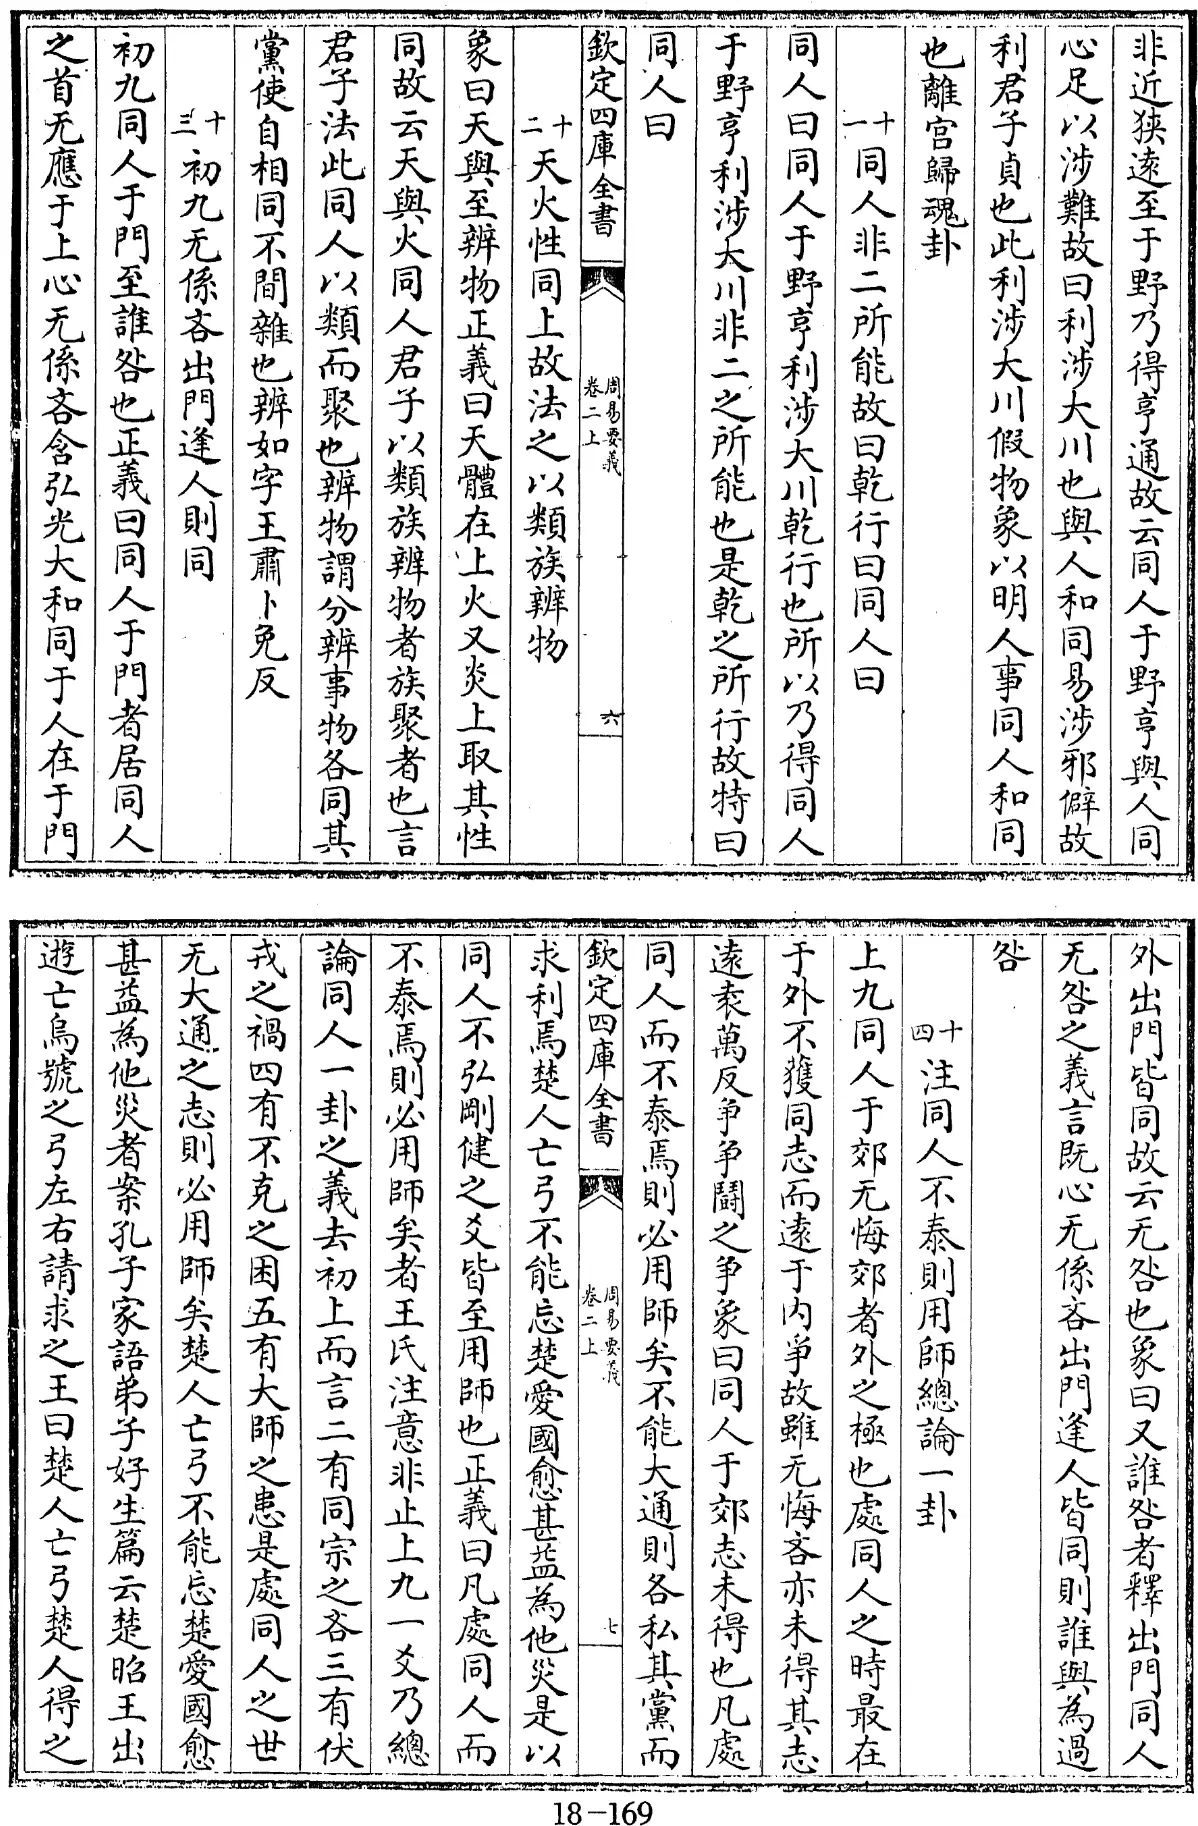 非近狹遠至于野乃得亨通故云同人于野亨與人同
心足以涉難故曰利涉大川也與人和同易涉邪僻故
利君子貞也此利涉大川假物象以明人事同人和同
也離宮歸魂卦
十一同人非二所能故曰乾行曰同人曰
同人曰同人于野亨利涉大川乾行也所以乃得同人
于野亨利涉大川非二之所能也是乾之所行故特曰
同人曰
欽定四庫全書
周易要義
卷二上
六
十二天火性同上故法之以類族辨物
象曰天與至辨物正義曰天體在上火又炎上取其性
同故云天與火同人君子以類族辨物者族聚者也言
君子法此同人以類而聚也辨物謂分辨事物各同其
黨使自相同不間雜也辨如字王肅卜免反
十三初九无係吝出門逢人則同
初九同人于門至誰咎也正義曰同人于門者居同人
之首无應于上心无係吝含弘光大和同于人在于門
外出門皆同故云无咎也象曰又誰咎者釋出門同人
无咎之義言既心无係吝出門逢人皆同則誰與為過
咎
十四注同人不泰則用師總論一卦
上九同人于郊无悔郊者外之極也處同人之時最在
于外不獲同志而遠于内爭故雖无悔吝亦未得其志
遠袁萬反爭爭鬪之爭象曰同人于郊志未得也凡處
同人而不泰焉則必用師矣不能大通則各私其黨而
欽定四庫全書
周易要義
卷二上
七
求利焉楚人亡弓不能忘楚愛國愈甚益為他災是以
同人不弘剛健之爻皆至用師也正義曰凡處同人而
不泰焉則必用師矣者王氏注意非止上九一爻乃總
論同人一卦之義去初上而言二有同宗之吝三有伏
戎之禍四有不克之困五有大師之患是處同人之世
无大通之志則必用師矣楚人亡弓不能忘楚愛國愈
甚益為他災者案孔子家語弟子好生篇云楚昭王出
遊亡烏號之弓左右請求之王曰楚人亡弓楚人得之
18-169